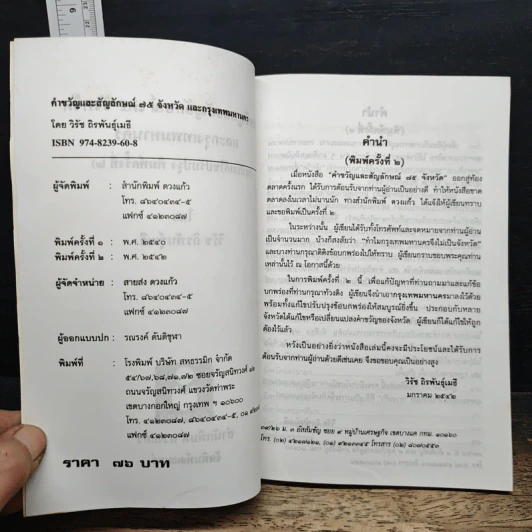 คำขวัญและสัญลักษณ์ ๗๕ จังหวัด และกรุงเทพมหานคร
โดย วิรัช ถิรพันธุ์เมธี
ISBN 974-8239-60-8
ผู้จัดพิมพ์ : สำนักพิมพ์ ดวงแก้ว
โทร. ๘๖๔๐๔๓๔-๕
แฟกซ์ ๔๑๒๓๐๘๗
พิมพ์ครั้งที่ ๑ : พ.ศ. ๒๕๔๐
พิมพ์ครั้งที่ ๒ : พ.ศ. ๒๕๔๒
ผู้จัดจำหน่าย : สายส่ง ดวงแก้ว
โทร. ๘๖๔๐๔๓๔-๕
แฟกซ์ ๔๑๒๓๐๘๗
ผู้ออกแบบปก : รณรงค์ ดันติชูฬา
พิมพ์ที่ : โรงพิมพ์ บริษัท สหธรรมิก จำกัด
๕๔/๖๗,๖๘,๗๑,๗๒ ซอยจรัญสนิทวงศ์ ๑๒
ถนนจรัญสนิทวงศ์ แขวงวัดท่าพระ
เขตบางกอกใหญ่ กรุงเทพ ฯ ๑๐๖๐๐
โทร. ๔๑๒๓๐๘๗, ๘๖๔๐๔๓๔-๕,
แฟกซ์ ๔๑๒๓๐๘๗
ราคา ๗๖ บาท
คำนำ
(พิมพ์ครั้งที่ ๒)
เมื่อหนังสือ "คำขวัญและสัญลักษณ์ ๗๕ จังหวัด" ออกสู่ท้อง
ตลาดครั้งแรก ได้รับการต้อนรับจากท่านผู้อ่านเป็นอย่างดี ทำให้หนังสือขาด
ตลาดลงในเวลาไม่นานนัก ทางสำนักพิมพ์ ดวงแก้ว ได้แจ้งให้ผู้เขียนทราบ
และขอพิมพ์เป็นครั้งที่ ๒
ในระหว่างนั้น ผู้เขียนได้รับทั้งโทรศัพท์และจดหมายจากท่านผู้อ่าน
เป็นจำนวนมาก บ้างก็สงสัยว่า "ทำไมกรุงเทพมหานครจึงไม่เป็นจังหวัด"
และบางท่านกรุณาติติงข้อบกพร่องไปให้ทราบ ผู้เขียนกราบขอบพระคุณท่าน
เหล่านั้นไว้ ณ โอกาสนี้ด้วย
ในการพิมพ์ครั้งที่ ๒ นี้ เพื่อแก้ปัญหาที่ท่านถามมาและแก้ข้อ
บกพร่องที่ท่านกรุณาท้วงติง ผู้เขียนจึงนำเอากรุงเทพมหานครมาลงไว้ด้วย
พร้อมทั้งแก้ไขปรับปรุงข้อบกพร่องให้สมบูรณ์ยิ่งขึ้น ประกอบกับหลาย
จังหวัดได้แก้ไขหรือเปลี่ยนแปลงคำขวัญของจังหวัด ผู้เขียนก็ได้แก้ไขให้ถูก
ต้องไว้แล้ว
หวังเป็นอย่างยิ่งว่าหนังสือเล่มนี้คงจะมีประโยชน์และได้รับการ
ต้อนรับจากท่านผู้อ่านด้วยดีเช่นเคย จึงขอขอบคุณเป็นอย่างสูง
วิรัช ถิรพันธุ์เมธี
มกราคม ๒๕๔๒